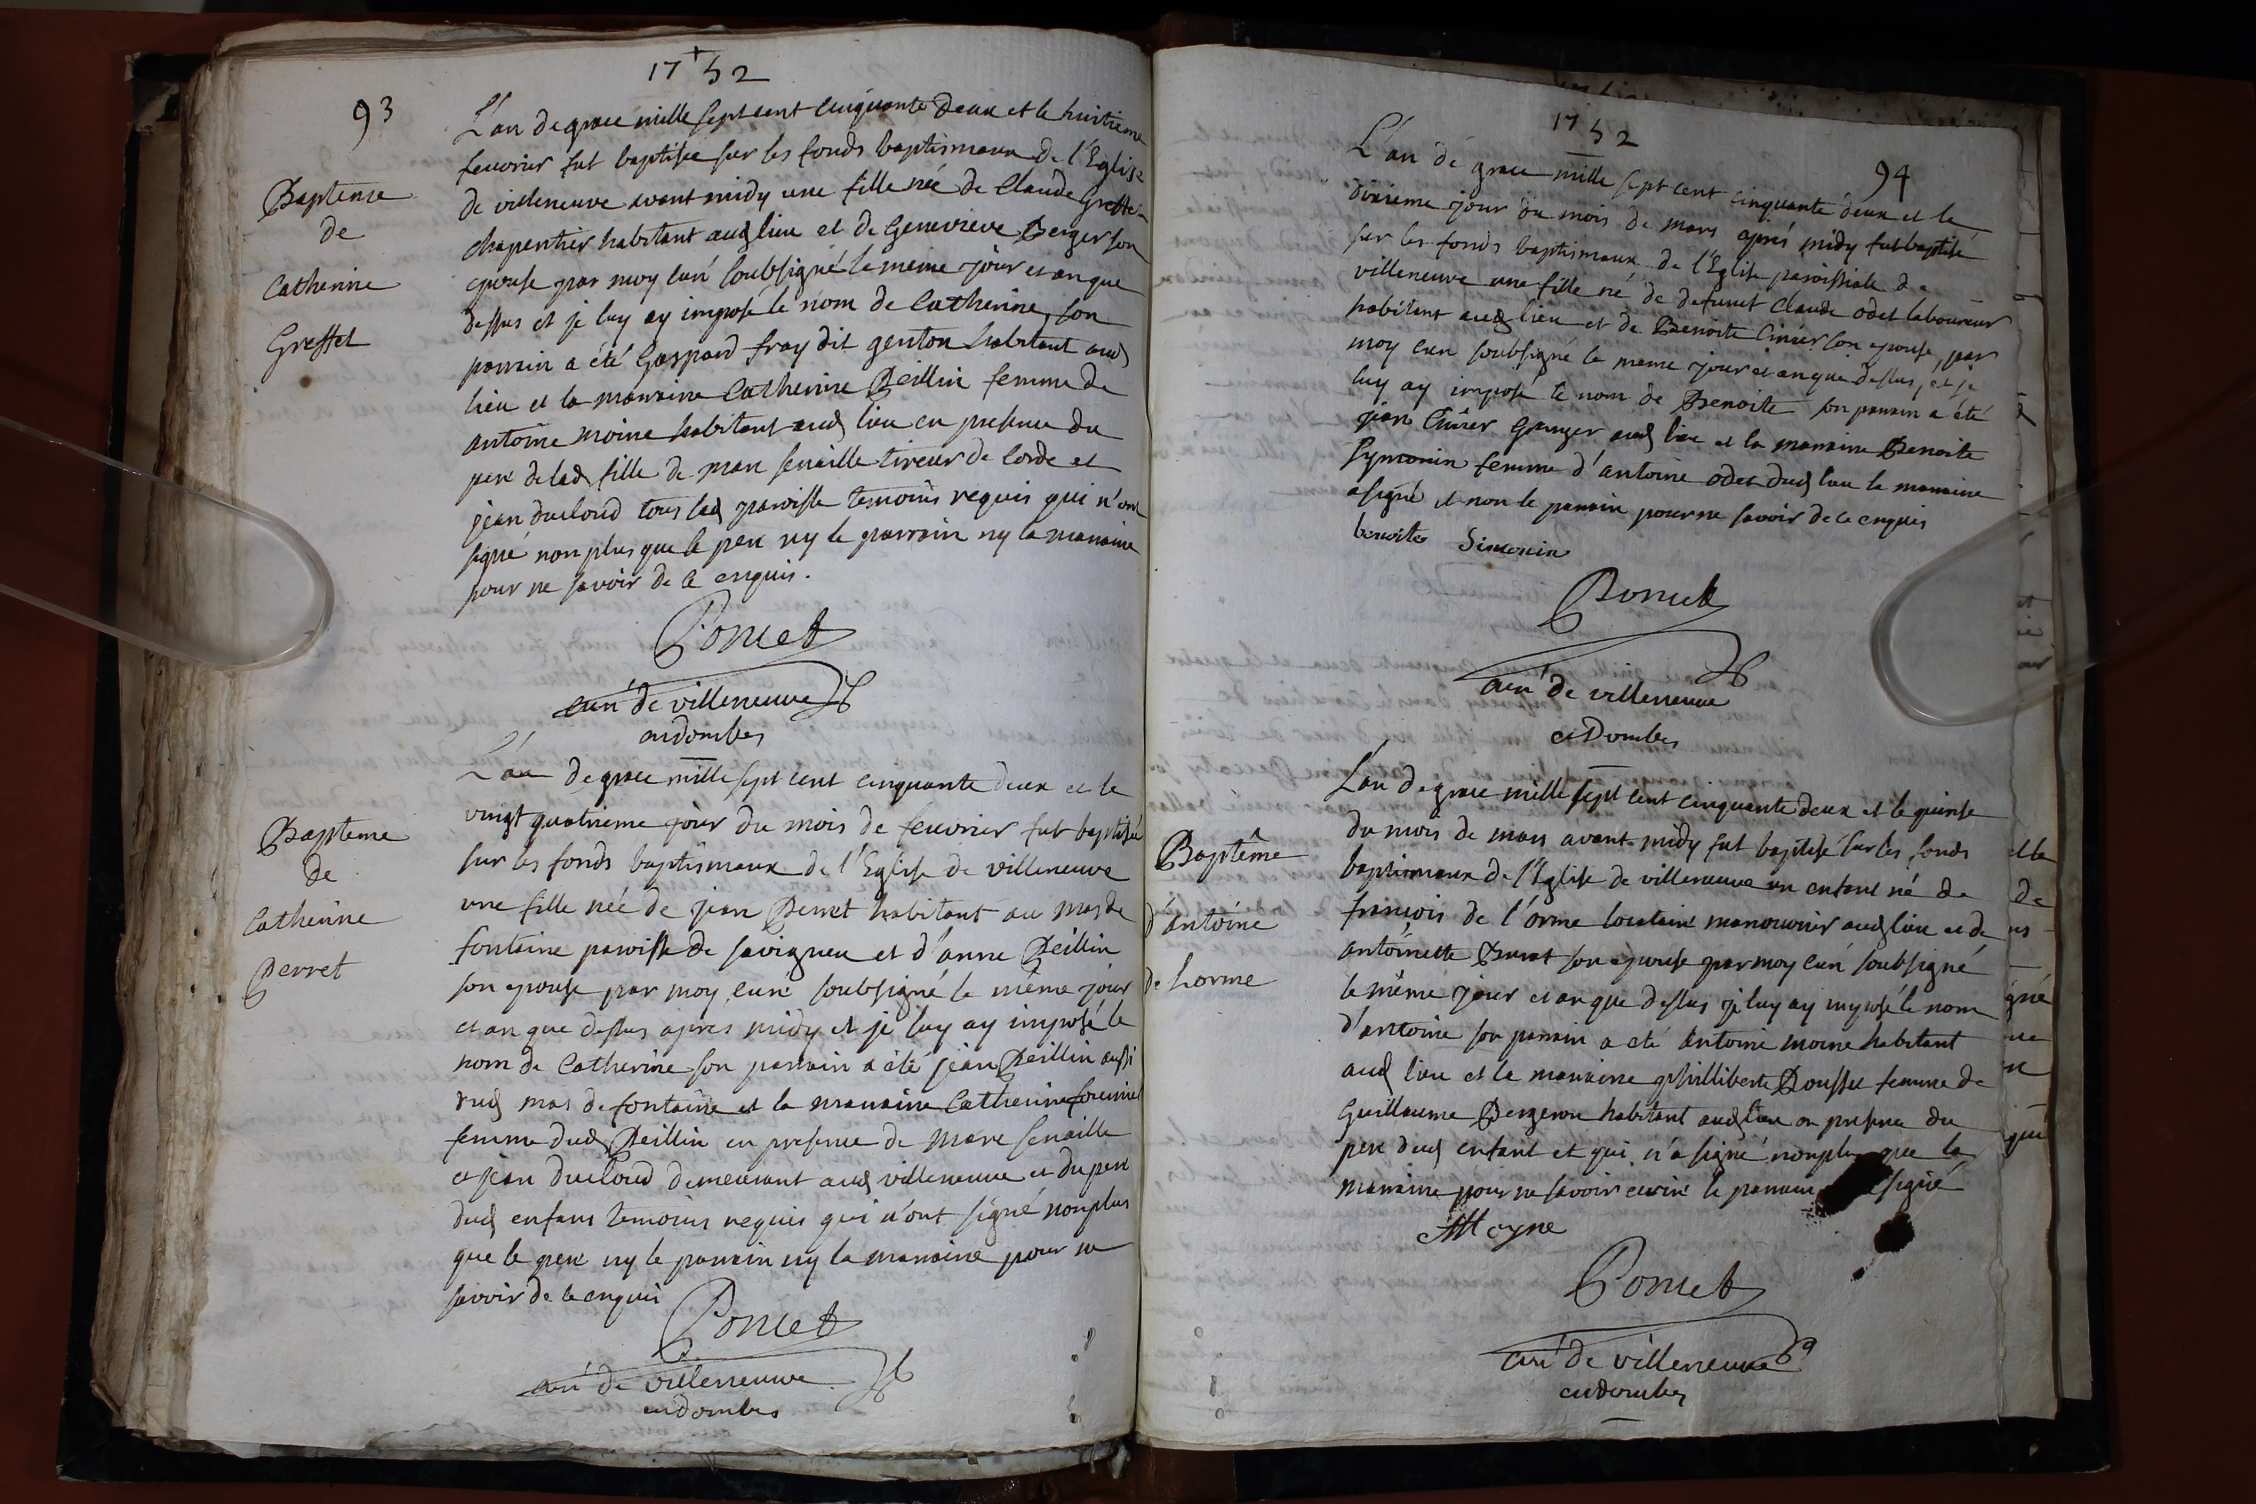 1752
93
L'an de grace mille sept cent cinquante deux et le huitieme
feuvrier fut baptisee sur les fonds baptismaux de l'Eglise
de villeneuve avant midy une fille née de Claude Greffet
chapentier habitant aud lieu et de Genevieve Berger son
epouse par moy curé soubsigné le meme jour et an que
dessus et je luy ay imposé le nom de Catherine, son
parrain a été Gaspard fray dit genton habitant aud
lieu et la marraine Catherine Peillin femme de
antoine moine habitant aud lieu en presence du
pere de lad fille de marc senaille tireur de corde et
jean ducloud tous lad paroisse temoins requis qui n'ont
signé non plus que le pere ny le parrain ny la maraine
pour ne savoir de ce enquis.
Bapteme
de
Catherine
Greffet
Poncet
curé de villeneuve
en dombes
L'an de grace mille sept cent cinquante deux et le
vingt quatrieme jour du mois de feuvrier fut baptisée
sur les fonds baptismaux de l'Eglise de villeneuve
une fille née de jean Perret habitant au mas de
fontaine paroisse de savigneu et d'anne Peillin
son epouse par moy curé soubsigné le même jour
et an que dessus apres midy et je luy ay imposé le
nom de Catherine son parrain a été jean Peillin aussi
dud mas de fontaine et la maraine Catherine
femme dud Peillin en presence de Marc senaille
et jean ducloud demeurant aud villeneuve et du pere
dud enfans temoins requis qui n'ont signé nonplus
que le pere ny le parrain ny la maraine pour ne
savoir de ce enquis
Bapteme
de
Catherine
Perret
Poncet
curé de villeneuve
en dombes
1752
94
L'an de grace mille sept cent cinquante deux et le
dixieme jour du mois de mars aprés midy fut baptisé
sur les fonds baptismaux de l'Eglise paroissiale de
villeneuve une fille né de defunct Claude odet laboureur
habitant aud lieu et de Benoite Cinier son epouse, par
moy curé soubsigné le meme jour et an que dessus, et je
luy ay imposé le nom de Benoite son parrain a été
jean Cinier Granger aud lieu et la maraine Benoite
Symonin femme d'antoine odet dud lieu la maraine
a signé et non le parrain pour ne savoir de ce enquis
benoite Simonin
Poncet
curé de villeneuve
en Dombes
L'an de grace mille sept cent cinquante deux et le quinse
du mois de mars avant midy fut baptisé sur les fonds
baptismaux de l'Eglise de villeneuve un enfant né de
francois de l'orme locataire manouvrier aud lieu et de
antoinette son epouse par moy curé soubsigné
le même jour et an que dessus je luy ay imposé le nom
d'antoine son parrain a été antoine moine habitant
aud lieu et la maraine philliberte Doussu femme de
Guillaume Bergeron habitant aud lieu en presence du
pere dud enfant et qui n'a signé nonplus que la
maraine pour ne savoir ecrire le parrain signé
Baptême
d'antoine
de lorme
Moyne
Poncet
curé de villeneuve
en dombes